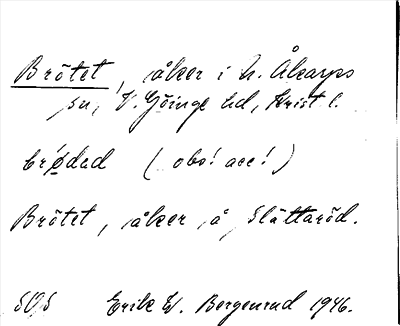 Brötet, åker i N. Åkarps
sn, V. Göinge hd, Krist l.
brǿdad ( obs! acc! )
Brötet, åker å Slättaröd.
SOS Erik W. Bergenrud 1946.